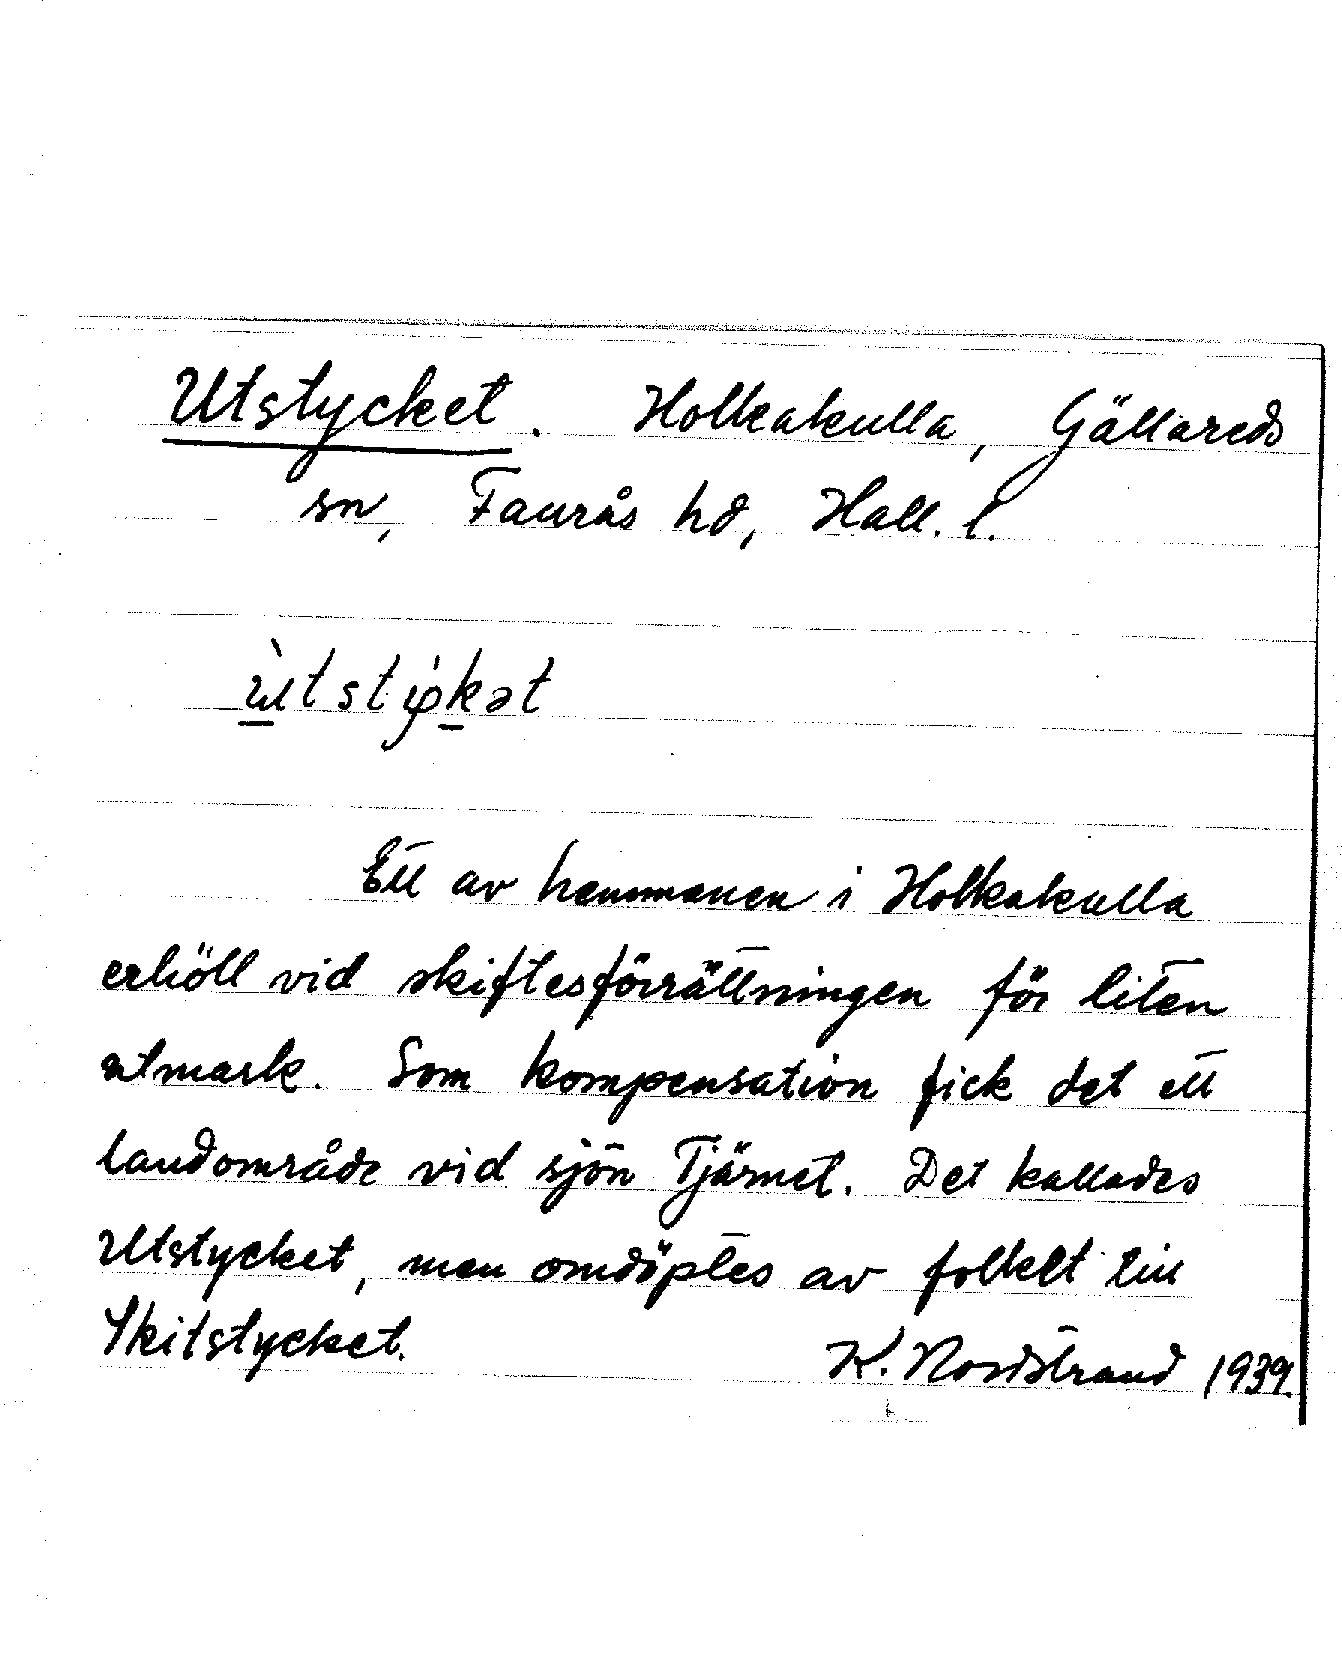 Utstycket. Holkakulla, Gällareds
sn, Faurås hd, Hall. l.
ùtstykət
Ett av hemmanen i Holkakulla
erhöll vid skiftesförrättningen för liten
utmark. Som kompensation fick det ett
landområde vid sjön Tjärnet. Det kallades
Utstycket, men omdöptes av folket till
Skitstycket.
K. Nordstrand 1939.